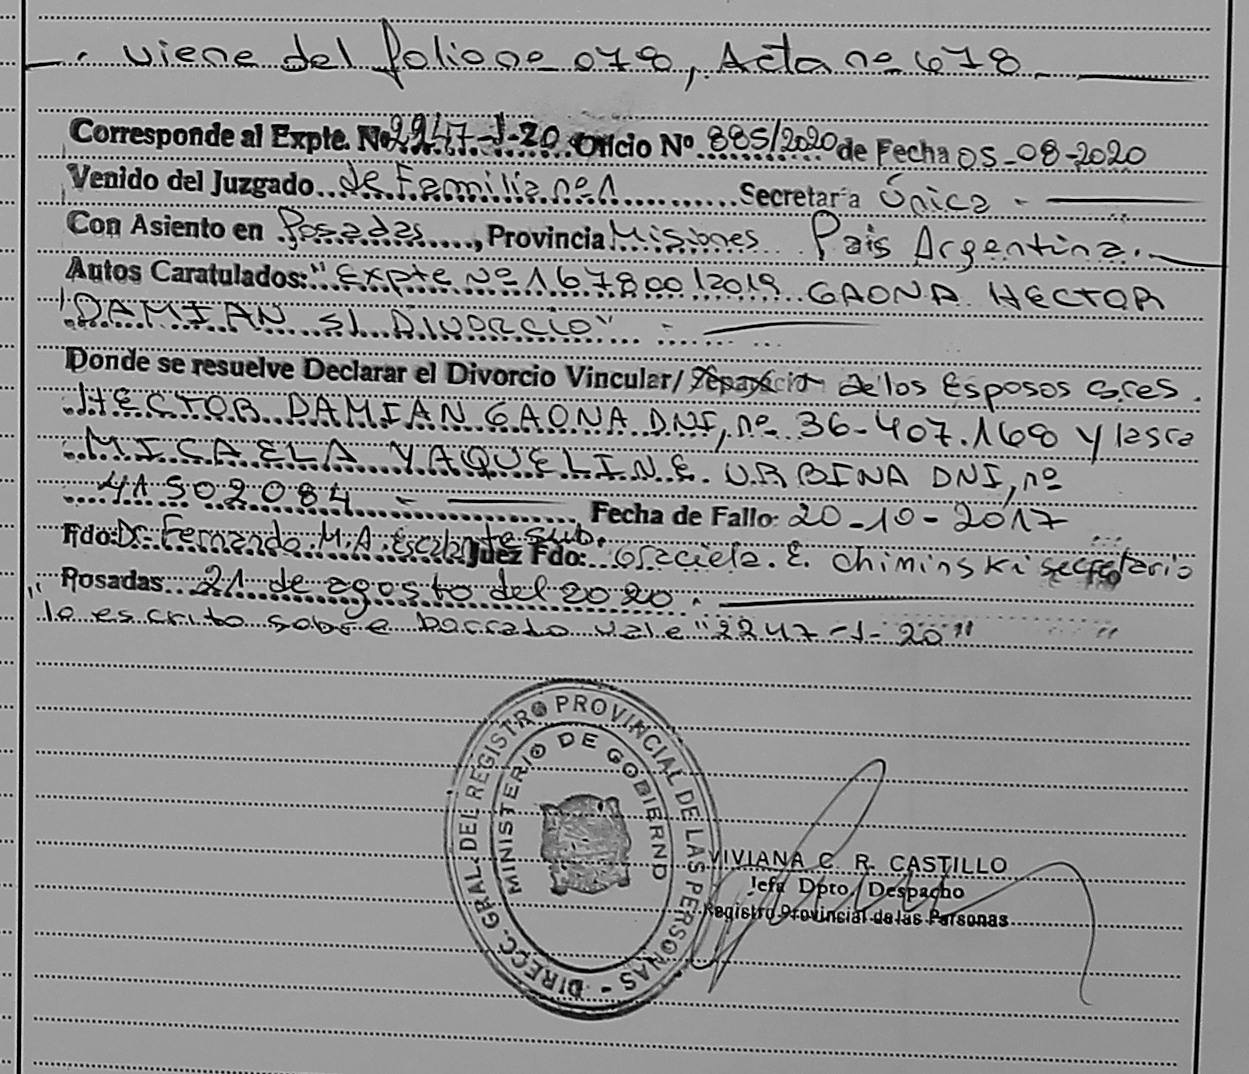 . viene del folio nº 078, Acta nº 678
Corresponde al Expte. Nº 2247-J-20 Oficio Nº 885/2020 de Fecha 05-08-2020
Venido del Juzgado de Familia nº 1 Secretaría Única -
Con Asiento en Posadas, Provincia Misiones País Argentina.
Autos Caratulados: "Expte Nº 167800/2019 GAONA HECTOR
DAMIAN S/ DIVORCIO" -
Donde se resuelve Declarar el Divorcio Vincular/ Separación de los Esposos Sres.
HECTOR DAMIAN GAONA DNI, nº 36-407.168 y la sra
MICAELA YAQUELINE URBINA DNI, nº
41502084 - Fecha de Fallo: 20-10-2017
Fdo: Dr. Fernando M.A. Escalante sub. Juez Fdo: Graciela. E. Chiminski secretario
Posadas 21 de agosto del 2020.
"lo escrito sobre borrado vale "2247-J-20" "
DIRECC. GRAL. DEL REGISTRO PROVINCIAL DE LAS PERSONAS -
MINISTERIO DE GOBIERNO
VIVIANA C. R. CASTILLO
Jefa Dpto. Despacho
Registro Provincial de las Personas